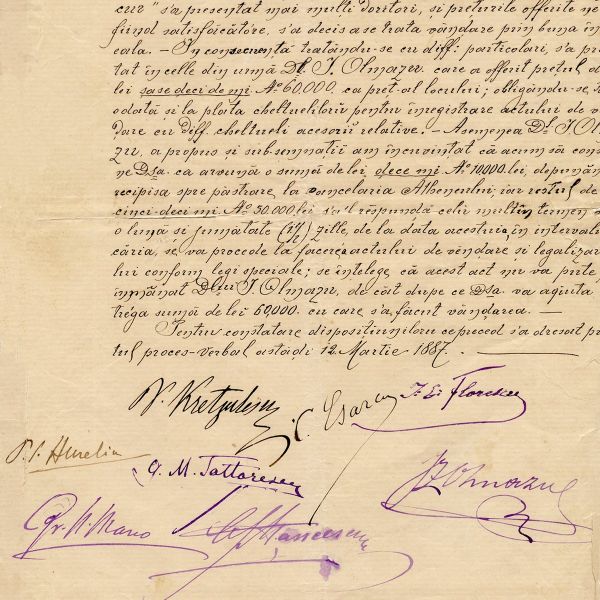 cur" s'a presentat mai mulți doritori, și prețurile offerite ne
fiind satisfăcătóre, s'a decis a se trata vândare prin buna în
eala. — In consecuență tratându-se cu diff: particulari, s'a pre
tat în celle din urmă Dl. I. Olmazu care a offerit prețul d
lei șase deci de mi No 60,000, ca preț al locului; obligându-se,
odată și la plata cheltuelilorŭ pentru înregistrare actului de v
dare cu diff. cheltueli acesorii relative. — Asemenea Dl I Ol
zu, a propus și subsemnații am încuviintat că acum să con
ne Dsa. ca arvună o sumă de lei, dece mi No 10000 lei, depunân
recipisa spre păstrare la cancelaria Atheneului; iar restul de
cinci-deci mi. No 50.000 lei s'a'l răspundă celŭ multŭ în termen d
o lună și jumătate (1 1/2) zille, de la data acestuia, în interval
căria, se va procede la facerea actului de vândare și legalizar
lui conform legi speciale; se înțelege că acest act nu va pute
înmânat Dlui I Olmazu, de cât dupe ce Dsa va achita
tréga sumă de lei 60,000. cu care s'a facut vândarea. —
Pentru constatare dispositiunilorŭ ce preced s'a dresat pr
tul proces-verbal astădi 12 Martie 1887.
N. Kretzulescu
C. Esarcu
I. Em Florescu
P. S. Aurelian
G. M. Tattarescu
I. Olmazu
Gr. N. Mano
C. I. Stăncescu